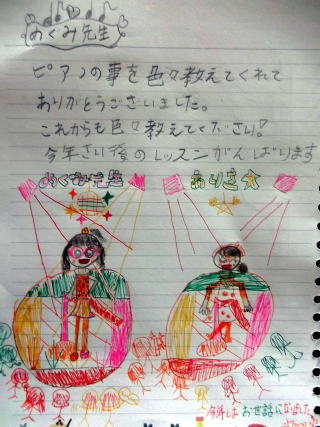 めぐみ先生
ピアノの事を色々教えてくれて
ありがとうございました。
これからも色々教えてください!
今年さい後のレッスンがんばります
めぐみ先生 ありさ
今年はお世話になりました